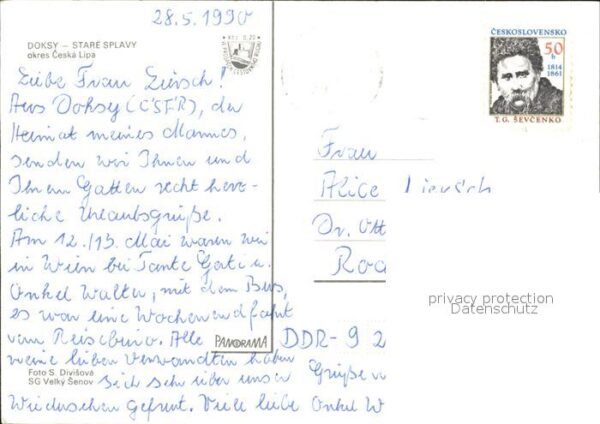 28.5.1990
DOKSY – STARÉ SPLAVY
okres Česká Lípa
Kčs 0,20
Liebe Frau Liersch!
Aus Doksy (ČSFR), der
Heimat meines Mannes,
senden wir Ihnen und
Ihrem Gatten recht herz-
liche Urlaubsgrüße.
Am 12./13. Mai waren wir
in Wien bei Tante Gati u.
Onkel Walter, mit dem Bus,
es war eine Wochenendfahrt
vom Reisebüro. Alle
meine lieben Verwandten haben
sich sehr über unser
Wiedersehen gefreut. Viele liebe
Grüße v
Onkel W
PANORAMA
Foto S. Divišová
SG Velký Šenov
ČESKOSLOVENSKO
50
h
1814
1861
T. G. ŠEVČENKO
Frau
Alice Liersch
Dr. Ott
Roc
DDR-9 2
privacy protection
Datenschutz